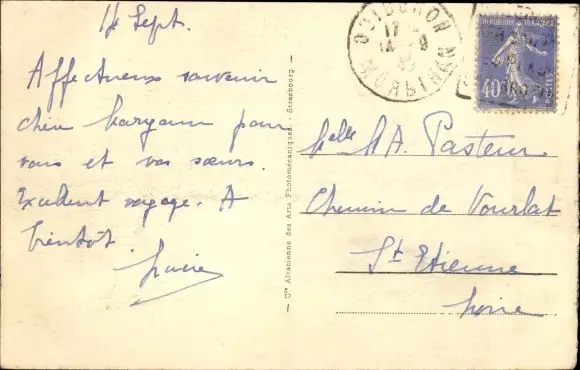 14 Sept.
Affectueux souvenir
pour
vous et vos sœurs.
Excellent voyage. A
bientôt
Lucie
Cie Alsacienne des Arts Photomécaniques - Strasbourg
QUIBERON
17
14 - 9
MORBIHAN
REPUBLIQUE FRANÇAISE
40c
POSTES
Melle A. Pasteur
Chemin de Vourlat
St Etienne
Loire